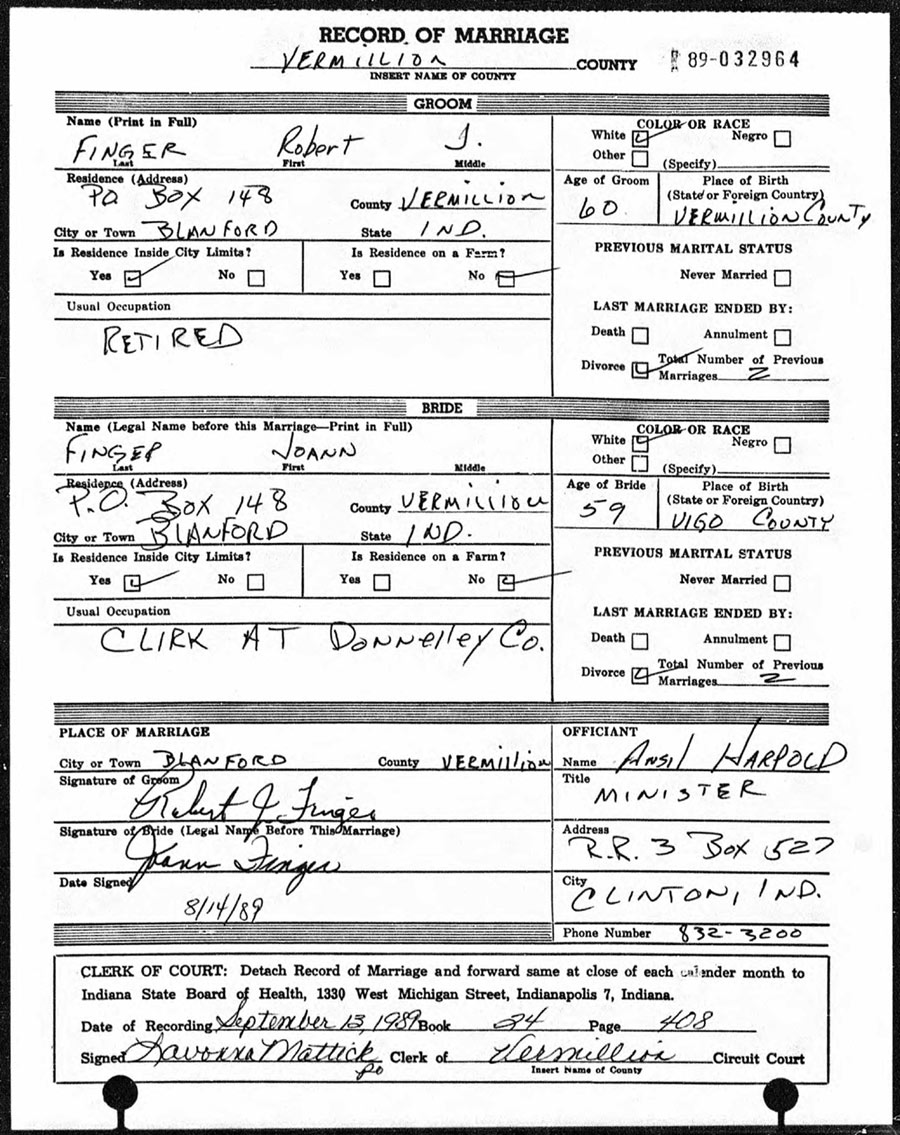 RECORD OF MARRIAGE
VERMILLION COUNTY 89-032964
INSERT NAME OF COUNTY
GROOM
Name (Print in Full)
FINGER Robert J.
Last First Middle
Residence (Address)
PO. BOX 148 County VERMILLION
City or Town BLANFORD State IND.
Is Residence Inside City Limits? Is Residence on a Farm?
Yes No Yes No
Usual Occupation
RETIRED
COLOR OR RACE
White Negro
Other (Specify)
Age of Groom Place of Birth
(State or Foreign Country)
60 VERMILLION COUNTY
PREVIOUS MARITAL STATUS
Never Married
LAST MARRIAGE ENDED BY:
Death Annulment
Divorce Total Number of Previous
Marriages 2
BRIDE
Name (Legal Name before this Marriage—Print in Full)
FINGER JOANN
Last First Middle
Residence (Address)
P.O. BOX 148 County VERMILLION
City or Town BLANFORD State IND.
Is Residence Inside City Limits? Is Residence on a Farm?
Yes No Yes No
Usual Occupation
CLIRK AT Donnelley Co.
COLOR OR RACE
White Negro
Other (Specify)
Age of Bride Place of Birth
(State or Foreign Country)
59 VIGO COUNTY
PREVIOUS MARITAL STATUS
Never Married
LAST MARRIAGE ENDED BY:
Death Annulment
Divorce Total Number of Previous
Marriages 2
PLACE OF MARRIAGE
City or Town BLANFORD County VERMillion
Signature of Groom
Robert J. Finger
Signature of Bride (Legal Name Before This Marriage)
Joann Finger
Date Signed
8/14/89
OFFICIANT
Name Ansil HARPOLD
Title
MINISTER
Address
R.R. 3 Box 527
City
CLINTON, IND.
Phone Number 832-3200
CLERK OF COURT: Detach Record of Marriage and forward same at close of each calender month to
Indiana State Board of Health, 1330 West Michigan Street, Indianapolis 7, Indiana.
Date of Recording September 13, 1989 Book 24 Page 408
Signed Lavonna Mattick Clerk of Vermillion Circuit Court
Insert Name of County